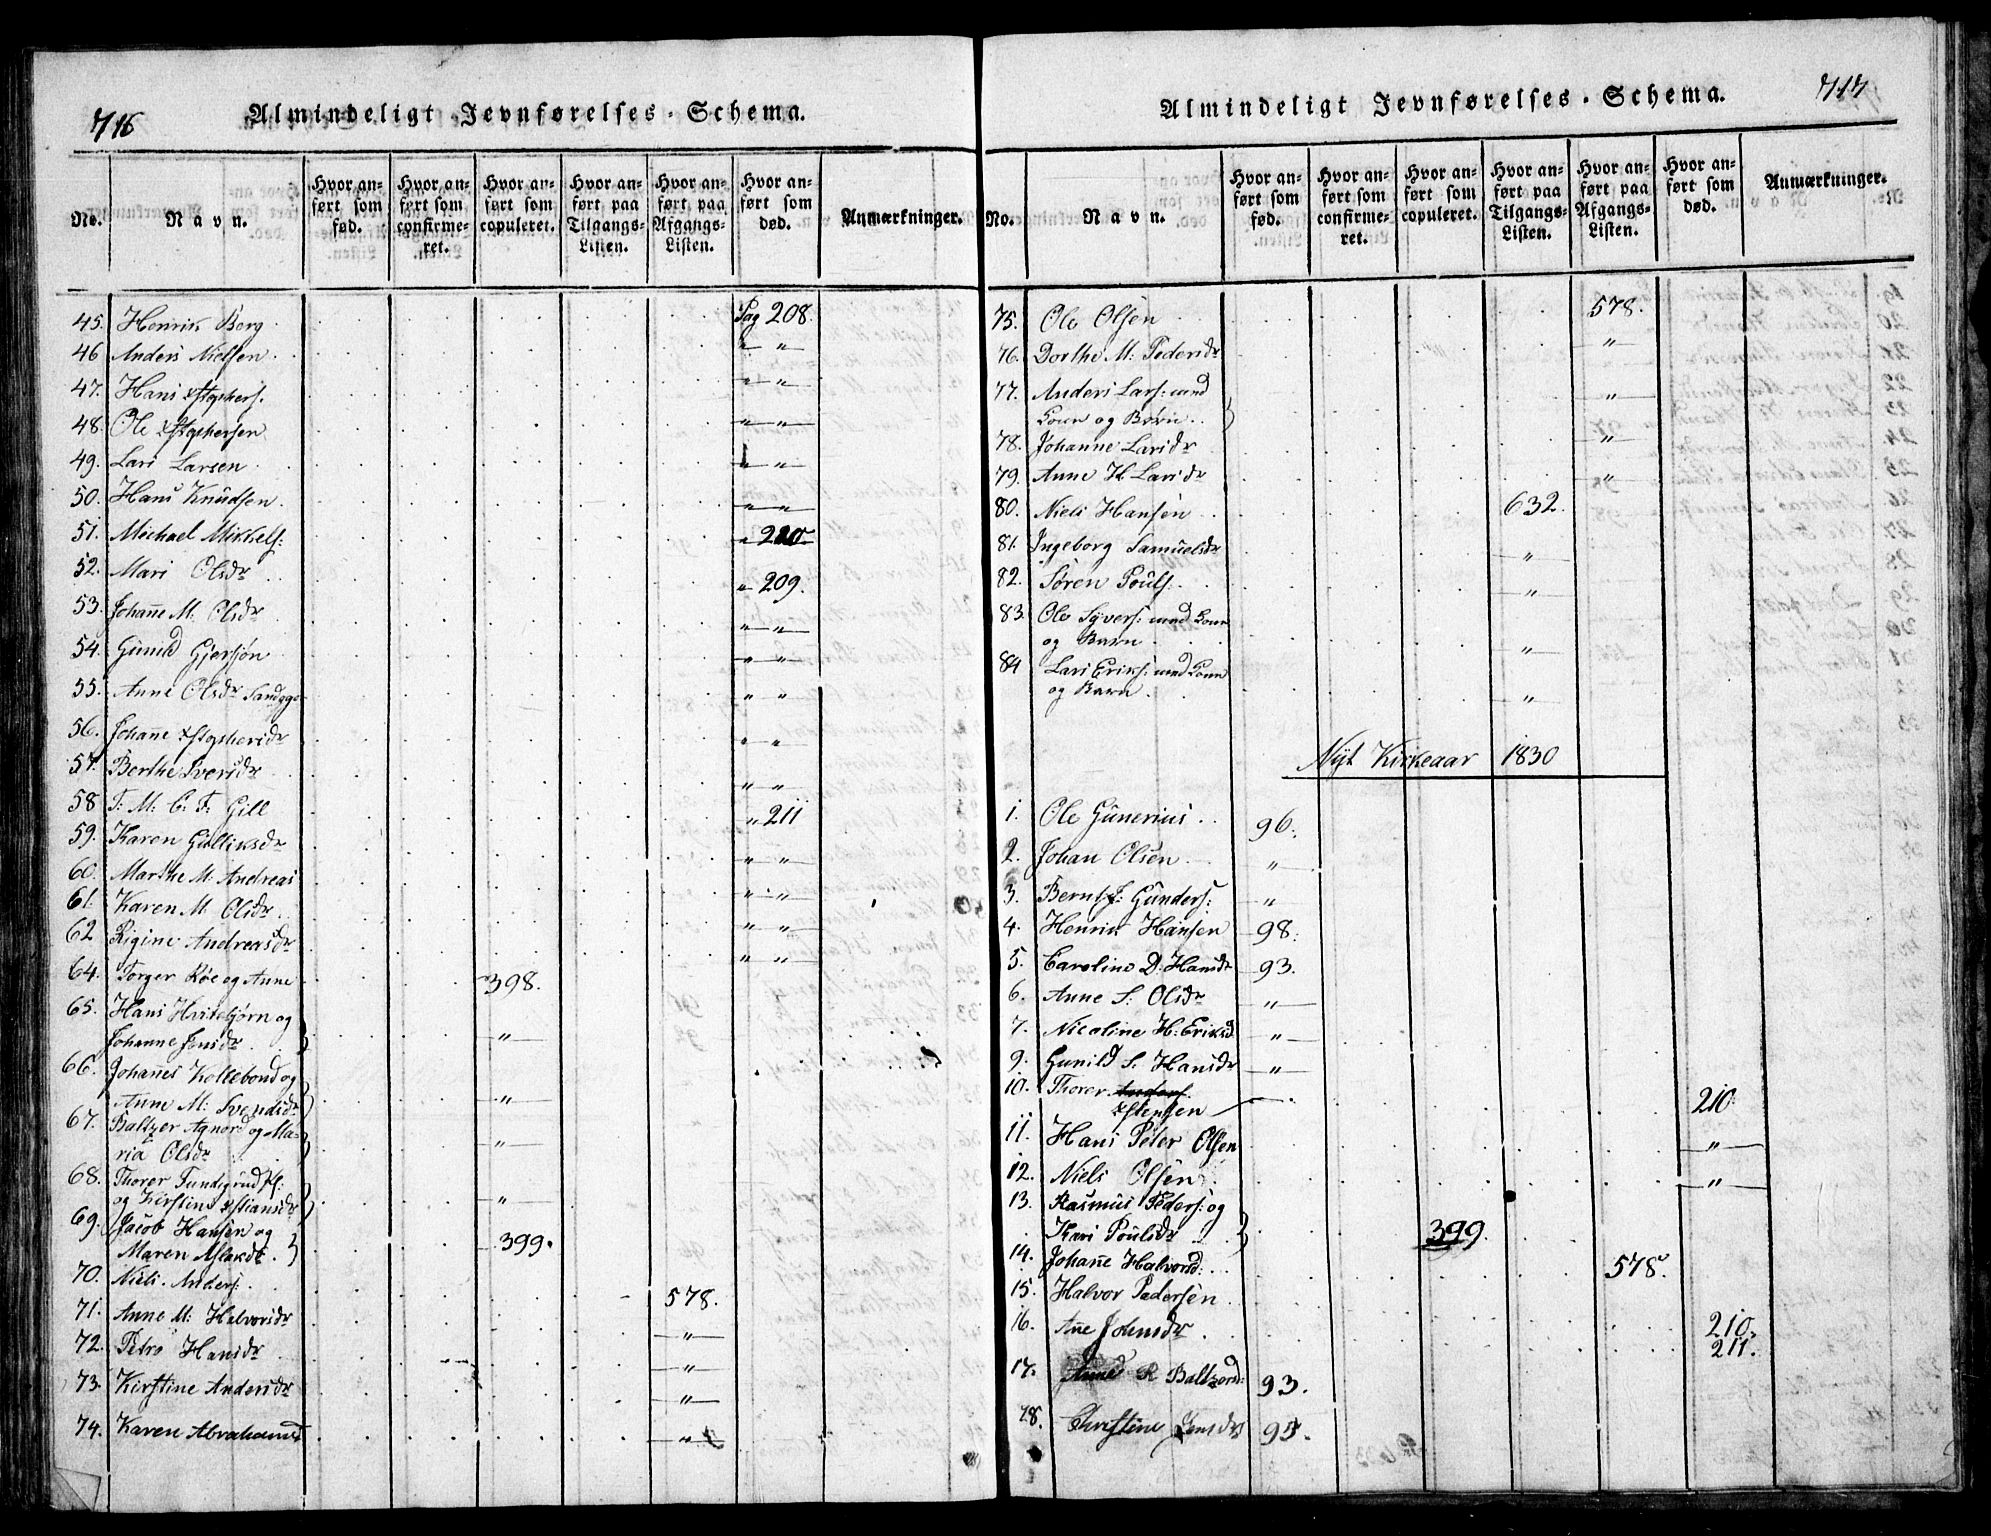 716
Almindeligt Jevnførelses-Schema.
No. Navn. Hvor anført som fød. Hvor anført som confirmeret. Hvor anført som copuleret. Hvor anført paa Tilgangs-Listen. Hvor anført paa Afgangs-Listen. Hvor anført som død. Anmærkninger.
45. Henrik Berg Pag 208.
46 Anders Nielsen " "
47. Hans xstophers. " "
48. Ole xstophersen " "
49. Lars Larsen " "
50. Hans Knudsen " "
51. Michael Mikkels: " 210
52. Mari Olsdr " 209.
53. Johañe M: Olsdr " "
54. Gunild Gjersjøn " "
55. Anne Olsdr " "
56. Johañe xstophersdr " "
57. Berthe Iversdr " "
58 T: M: C: F: Gill " 211
59. Karen Gulliksdr " "
60. Marthe M: Andreas " "
61. Karen M Olsdr " "
62 Rigine Andreasdr " "
64. Torger Röe og Anne 398.
65. Hans Hvitebjørn og
Johanne Jensdr. "
66. Johañes Kollebond og
Anne M: Svendsdr "
67. Baltzer Agnord og Ma-
ria Olsdr "
68. Thorer
og Kirstine xstiansdr "
69. Jacob Hansen og
Maren Aslakdt. 399.
70. Niels Anders: 578.
71. Anne M: Halvorsdr "
72. Petro Hansdr "
73. Kirstine Andersdr "
74. Karen Abrahamsd "
717
Almindeligt Jevnførelses-Schema.
No. Navn. Hvor anført som fød. Hvor anført som confirmeret. Hvor anført som copuleret. Hvor anført paa Tilgangs-Listen. Hvor anført paa Afgangs-Listen. Hvor anført som død. Anmærkninger.
75. Ole Olsen 578.
76. Dorthe M: Pedersdr "
77. Anders Lars: med
Kone og Børn "
78. Johanne Larsdr "
79. Anne H Larsdr "
80. Niels Hansen 632.
81. Ingeborg Samuelsdr "
82. Søren Pouls. "
83. Ole Syvers: med Kone
og Barn "
84 Lars Eriks: med Kone
og Barn "
Nyt Kirkeaar 1830
1. Ole Gunerius 96.
2. Johan Olsen "
3. Bernt J: Gunders: "
4. Henrik Hansen 98.
5. Caroline D: Hansdr 93.
6. Anne S: Olsdr "
7. Nicoline H: Eriksd "
9. Gunild S. Hansdr "
10. Thorer Anders.
xstensen 210
11. Hans Peter Olsen "
12. Niels Olsen "
13. Rasmus Peders: og
Kari Poulsdr 399.
14. Johañe Halvorsd: 578.
15. Halvor Pedersen
16. Añe Johnsdr 210.
211.
17. Anne R Baltzersd: 93.
18. Christine Jensdr 95.